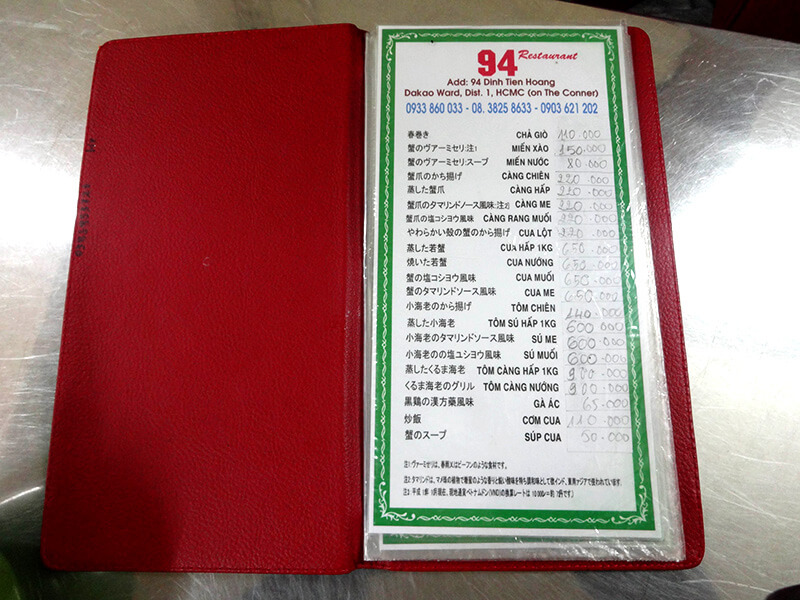 94 Restaurant
Add: 94 Dinh Tien Hoang
Dakao Ward, Dist. 1, HCMC (on The Conner)
0933 860 033 - 08. 3825 8633 - 0903 621 202
春巻き CHẢ GIÒ 110.000
蟹のヴァーミセリ:注1 MIẾN XÀO 150.000
蟹のヴァーミセリ:スープ MIẾN NƯỚC 80.000
蟹爪のから揚げ CÀNG CHIÊN 220.000
蒸した蟹爪 CÀNG HẤP 220.000
蟹爪のタマリンドノース風味:注2) CÀNG ME 220.000
蟹爪の塩コショウ風味 CÀNG RANG MUỐI 220.000
やわらかい殻の蟹のから揚げ CUA LỘT 220.000
蒸した若蟹 CUA HẤP 1KG 650.000
焼いた若蟹 CUA NƯỚNG 650.000
蟹の塩コショウ風味 CUA MUỐI 650.000
蟹のタマリンドソース風味 CUA ME 650.000
小海老のから揚げ TÔM CHIÊN 140.000
蒸した小海老 TÔM SÚ HẤP 1KG 600.000
小海老のタマリンドソース風味 SÚ ME 600.000
小海老のの塩ユシヨウ風味 SÚ MUỐI 600.000
蒸したくるま海老 TÔM CÀNG HẤP 1KG 900.000
くるま海老のグリル TÔM CÀNG NƯỚNG 900.000
黒鶏の漢方薬風味 GÀ ÁC 65.000
炒飯 CƠM CUA 110.000
蟹のスープ SÚP CUA 50.000
注1:ヴァーミセリは、春雨又はビーフンのような食材です。